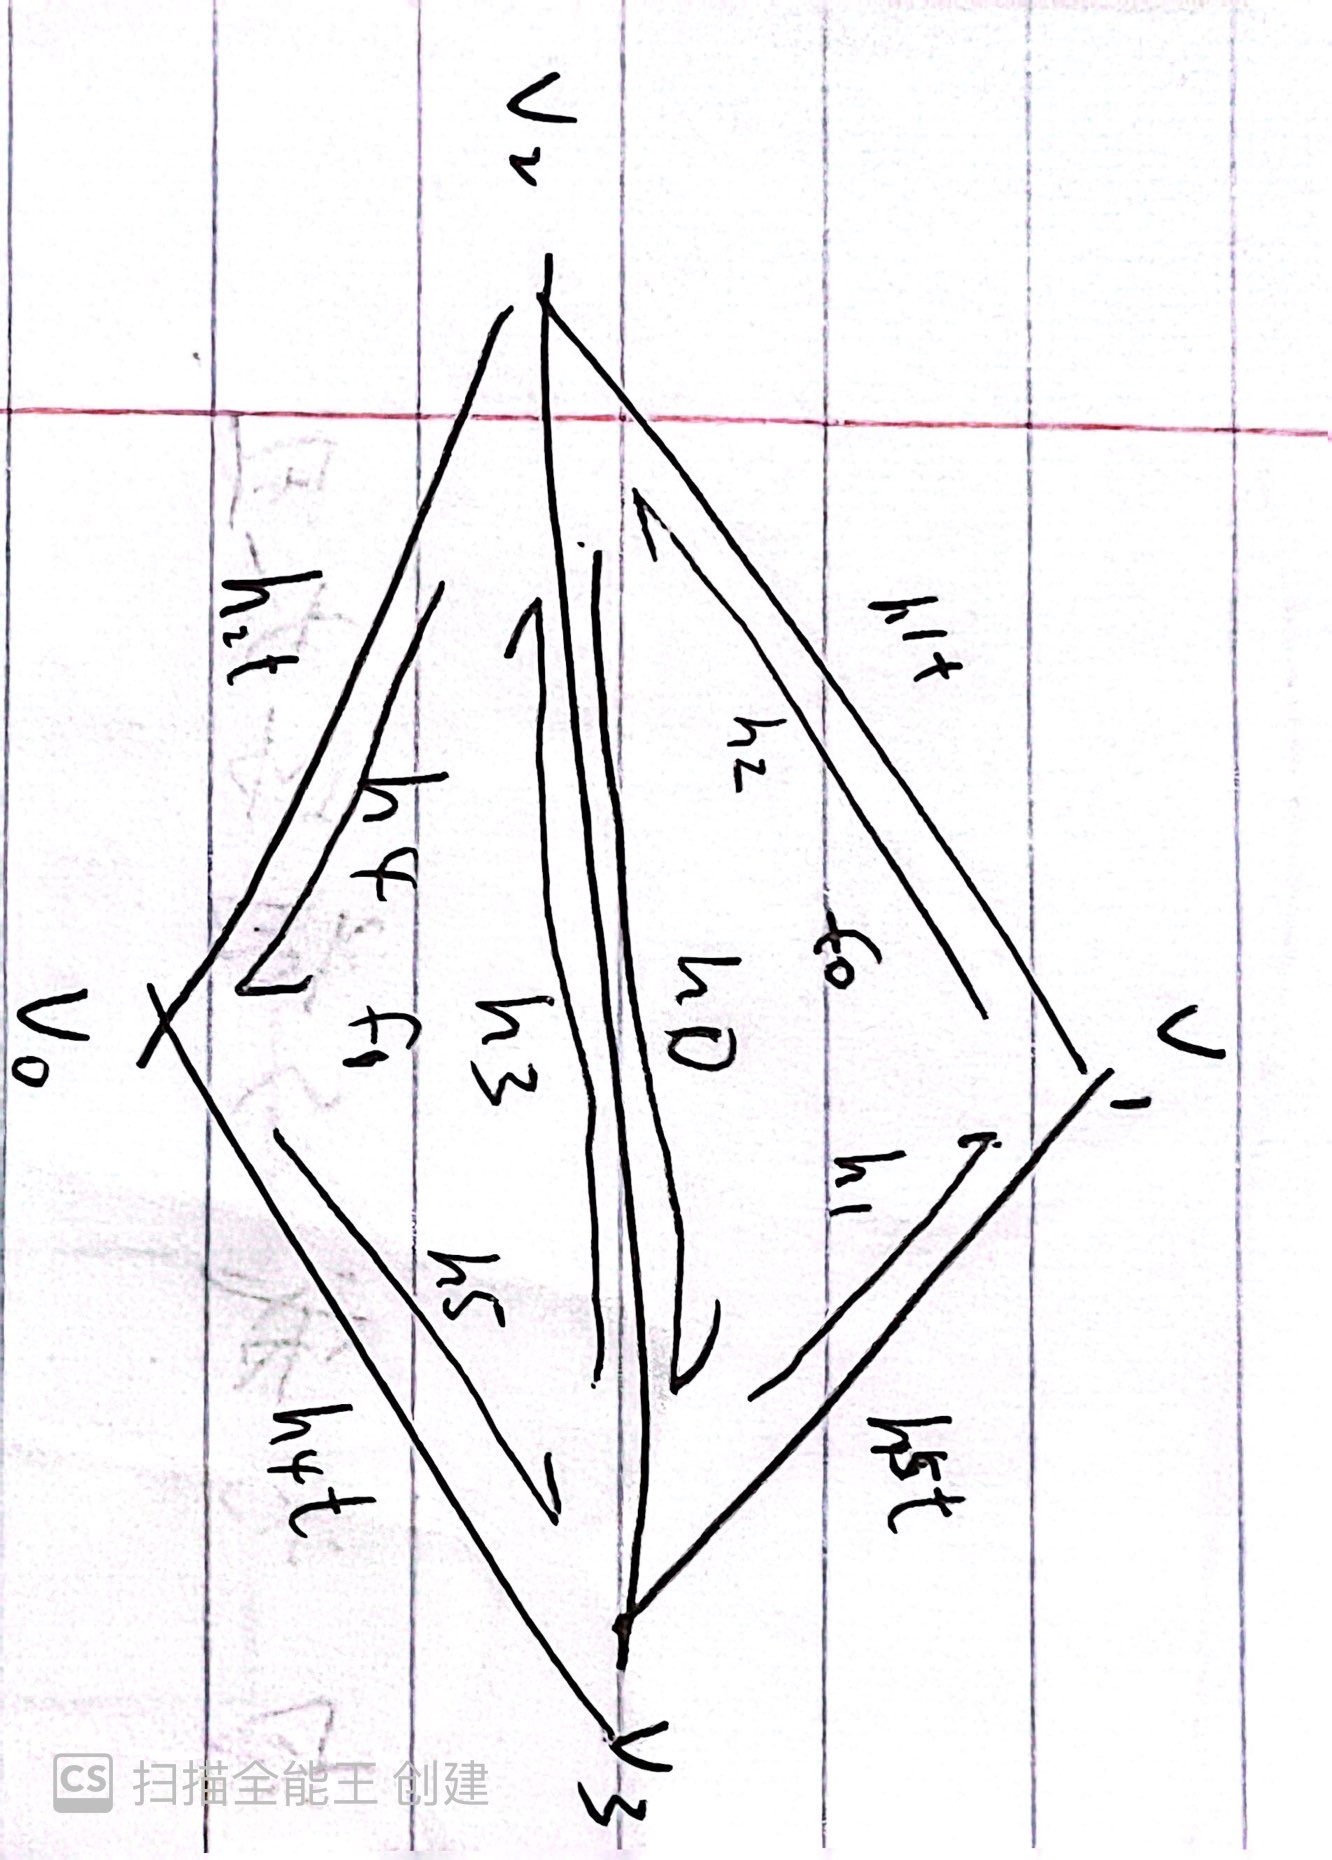 V1
h1t
h5t
f0
h1
h2
h0
V3
V2
h3
h5
h4
f1
h2t
h4t
V0
CS 扫描全能王 创建